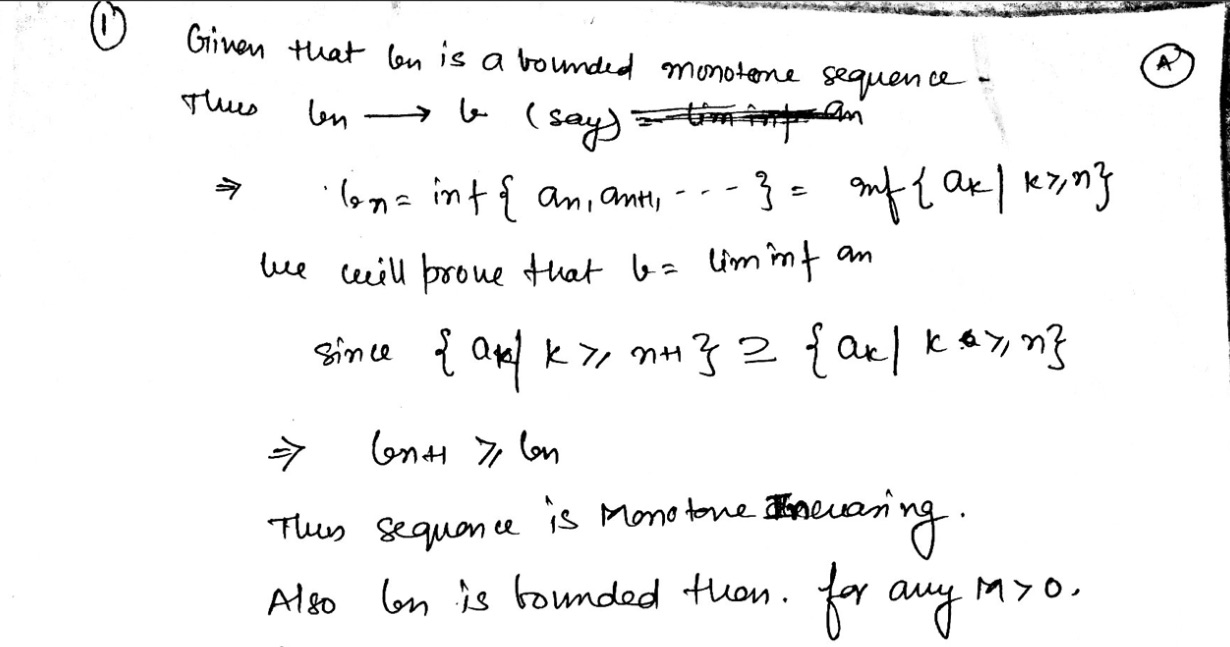 ① Given that bn is a bounded monotone sequence. Ⓐ
Thus bn → b (say) = lim inf an
⇒ bn = inf { an, an+1, - - - } = inf { ak | k ≥ n }
We will prove that b = lim inf an
since { ak | k ≥ n+1 } ⊇ { ak | k ≥ n }
⇒ bn+1 ≥ bn
Thus sequence is Monotone Increasing.
Also bn is bounded then. for any M > 0.